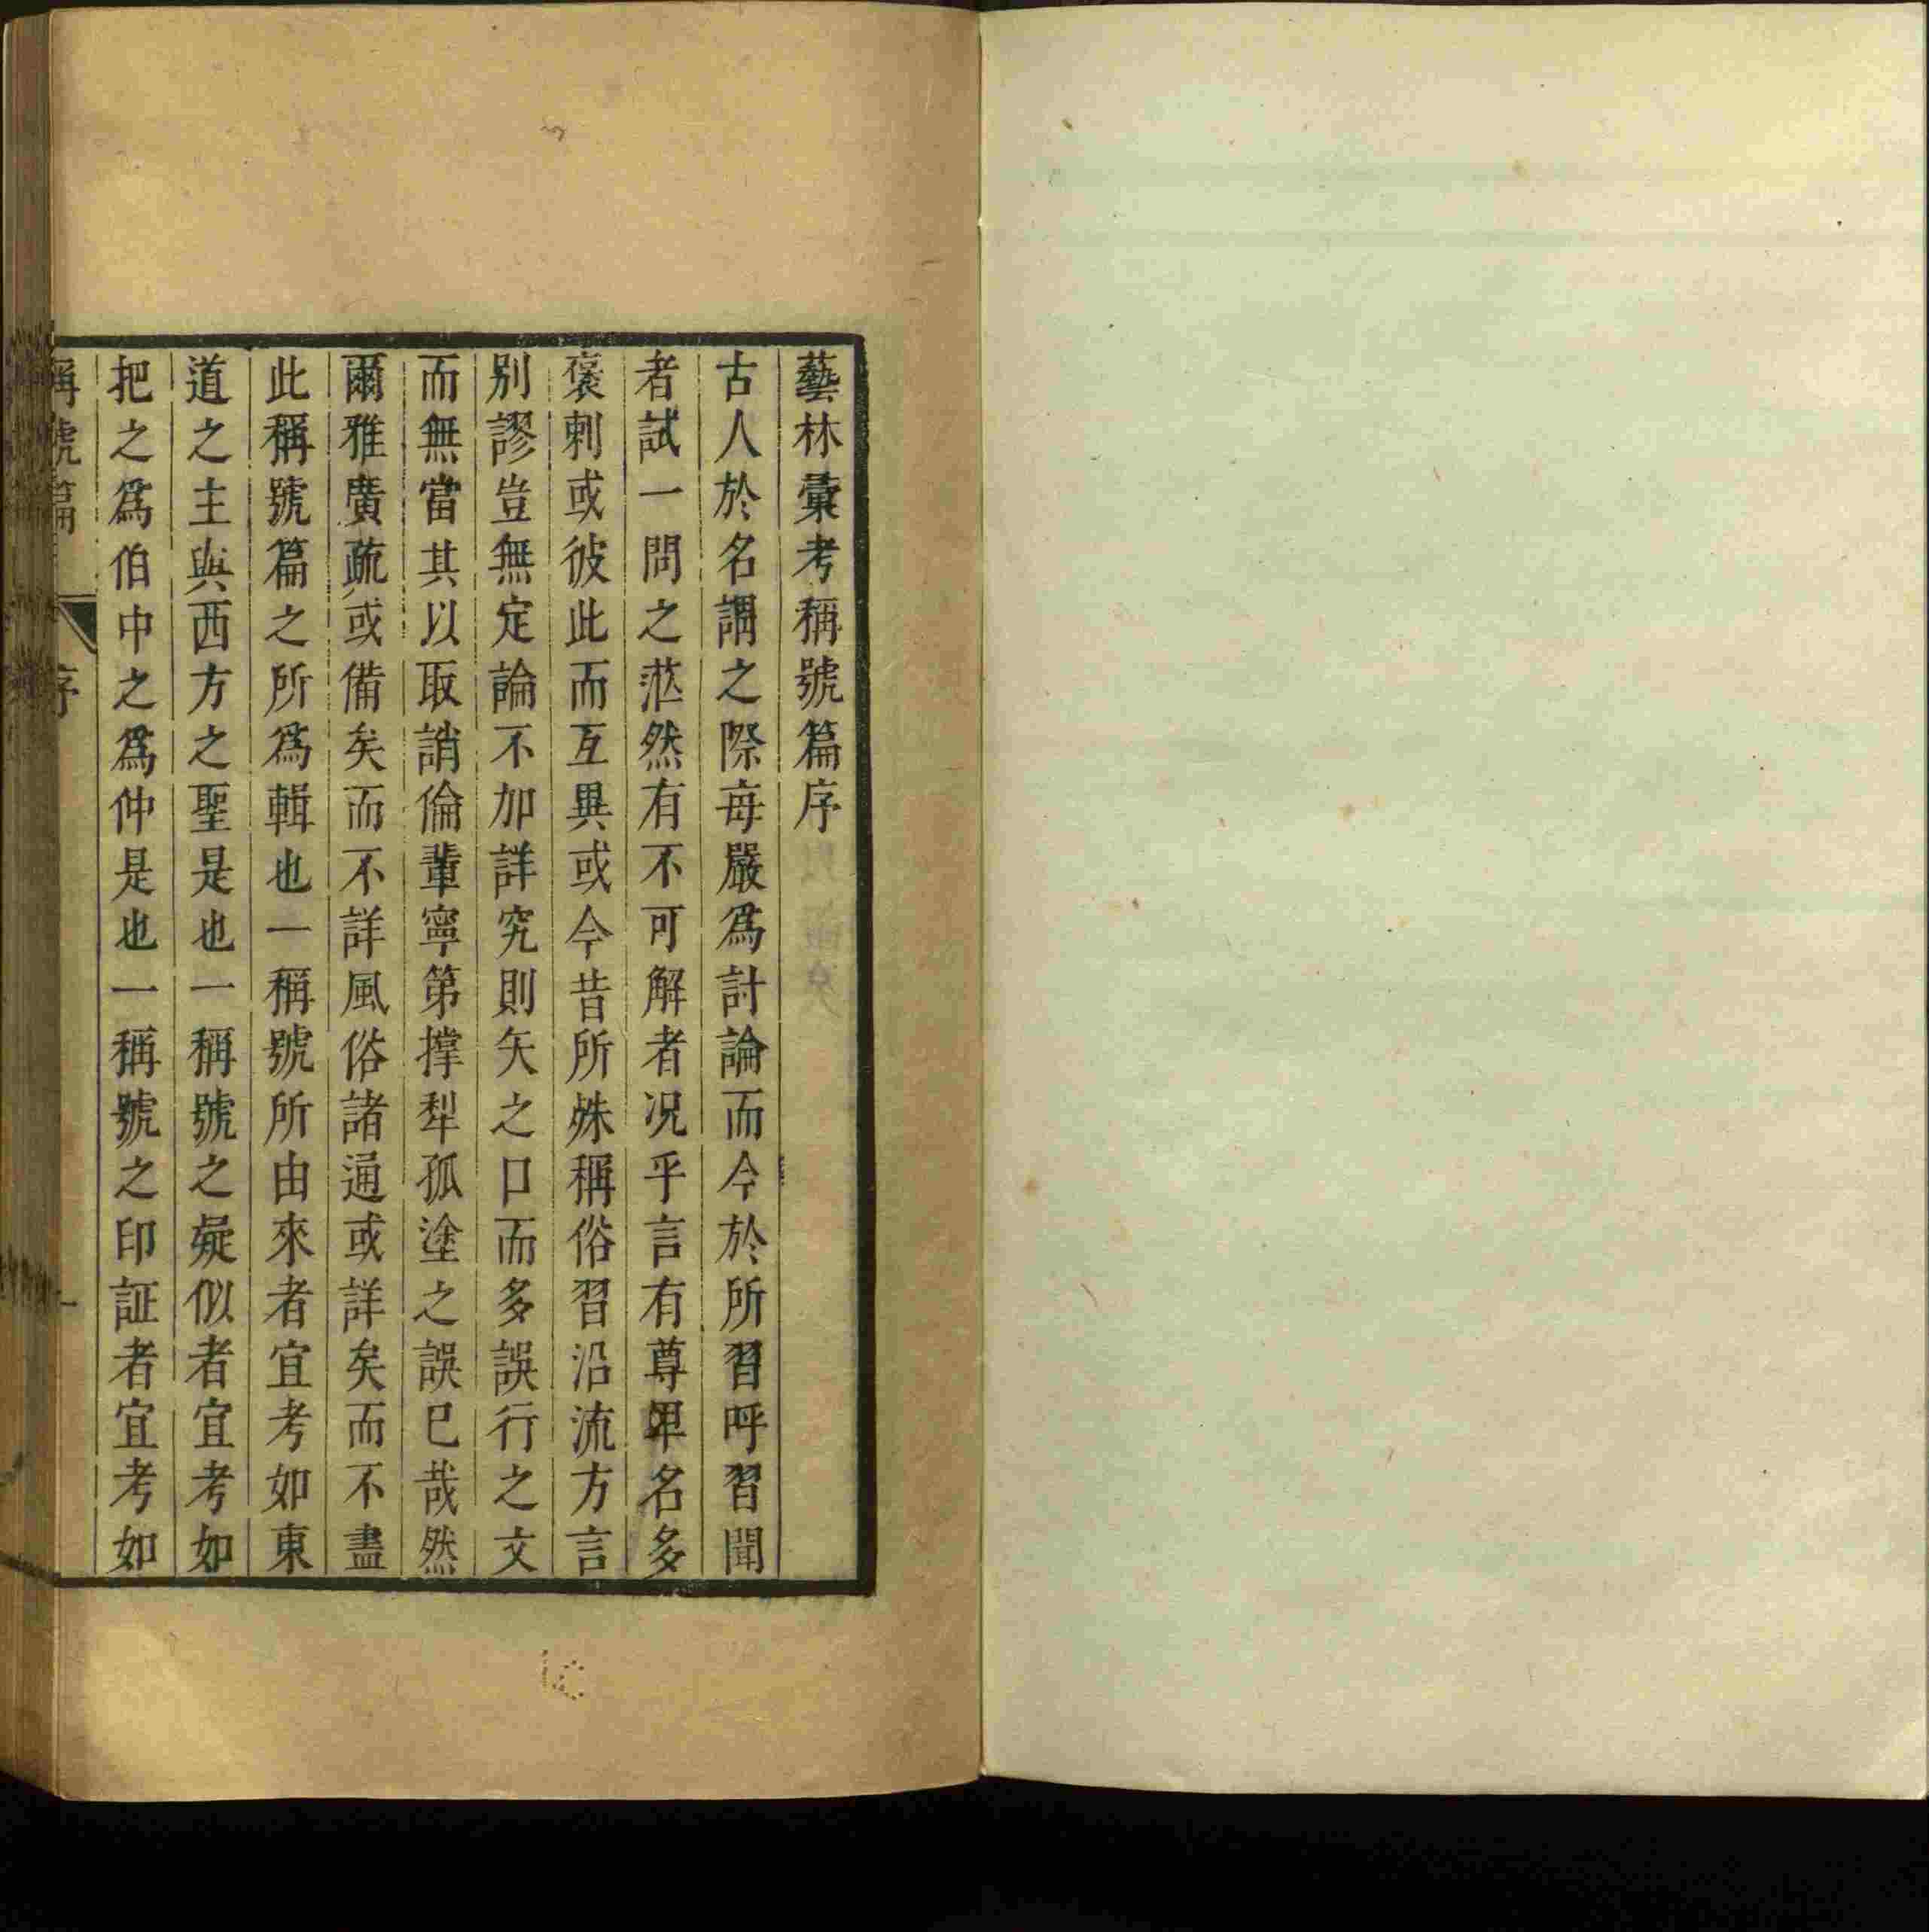 藝林彙考稱號篇序
古人於名謂之際每嚴爲討論而今於所習呼習聞
者試一問之茫然有不可解者况乎言有尊卑名多
褒刺或彼此而互異或今昔所殊稱俗習沿流方言
別謬豈無定論不加詳究則矢之口而多誤行之文
而無當其以取誚倫輩寧第撑犁孤塗之誤已哉然
爾雅廣疏或備矣而不詳風俗諸通或詳矣而不盡
此稱號篇之所爲輯也一稱號所由來者宜考如東
道之主與西方之聖是也一稱號之疑似者宜考如
把之爲伯中之爲仲是也一稱號之印証者宜考如
稱號篇 序 一